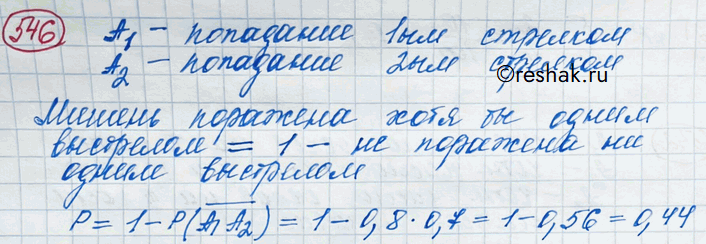 546
A₁ — попадание 1ым стрелком
A₂ — попадание 2ым стрелком
©reshak.ru
Мишень поражена хотя бы одним
выстрелом = 1 — не поражена ни
одним выстрелом
P = 1 − P(A̅₁A̅₂) = 1 − 0,8 · 0,7 = 1 − 0,56 = 0,44